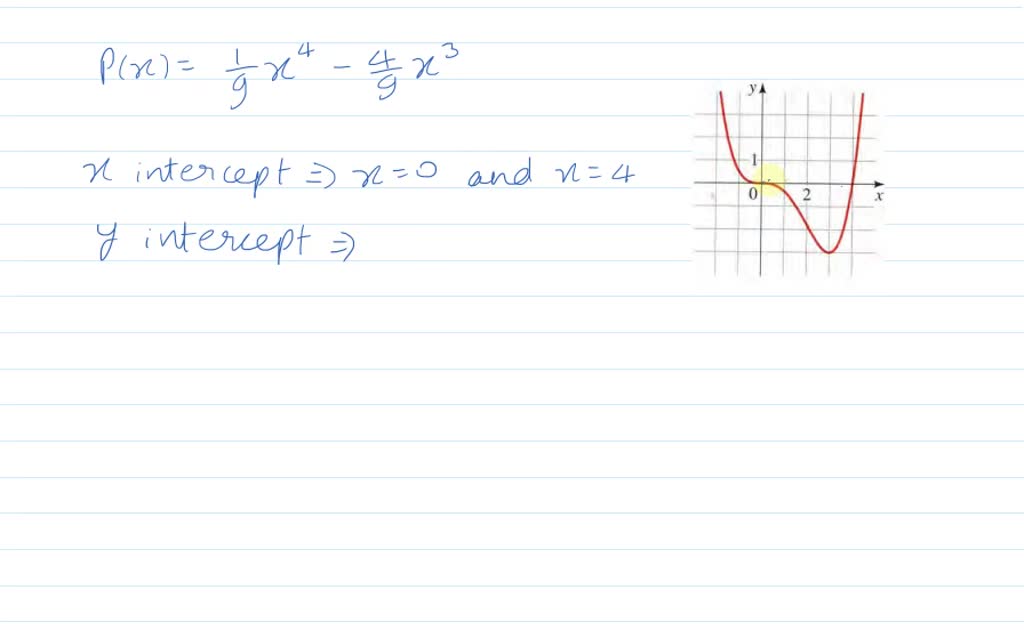 P(x) = 1/9 x^4 - 4/9 x^3
x intercept ⇒ x = 0 and x = 4
y intercept ⇒
y
1
0 2 x